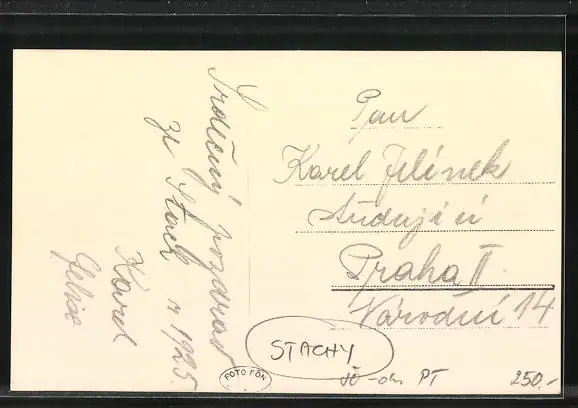 Srdečný pozdrav
ze Stach r 1925.
Karel
Pan
Karel Jelínek
studující
Praha II.
Národní 14
STACHY
FOTO FON
PT
250.-